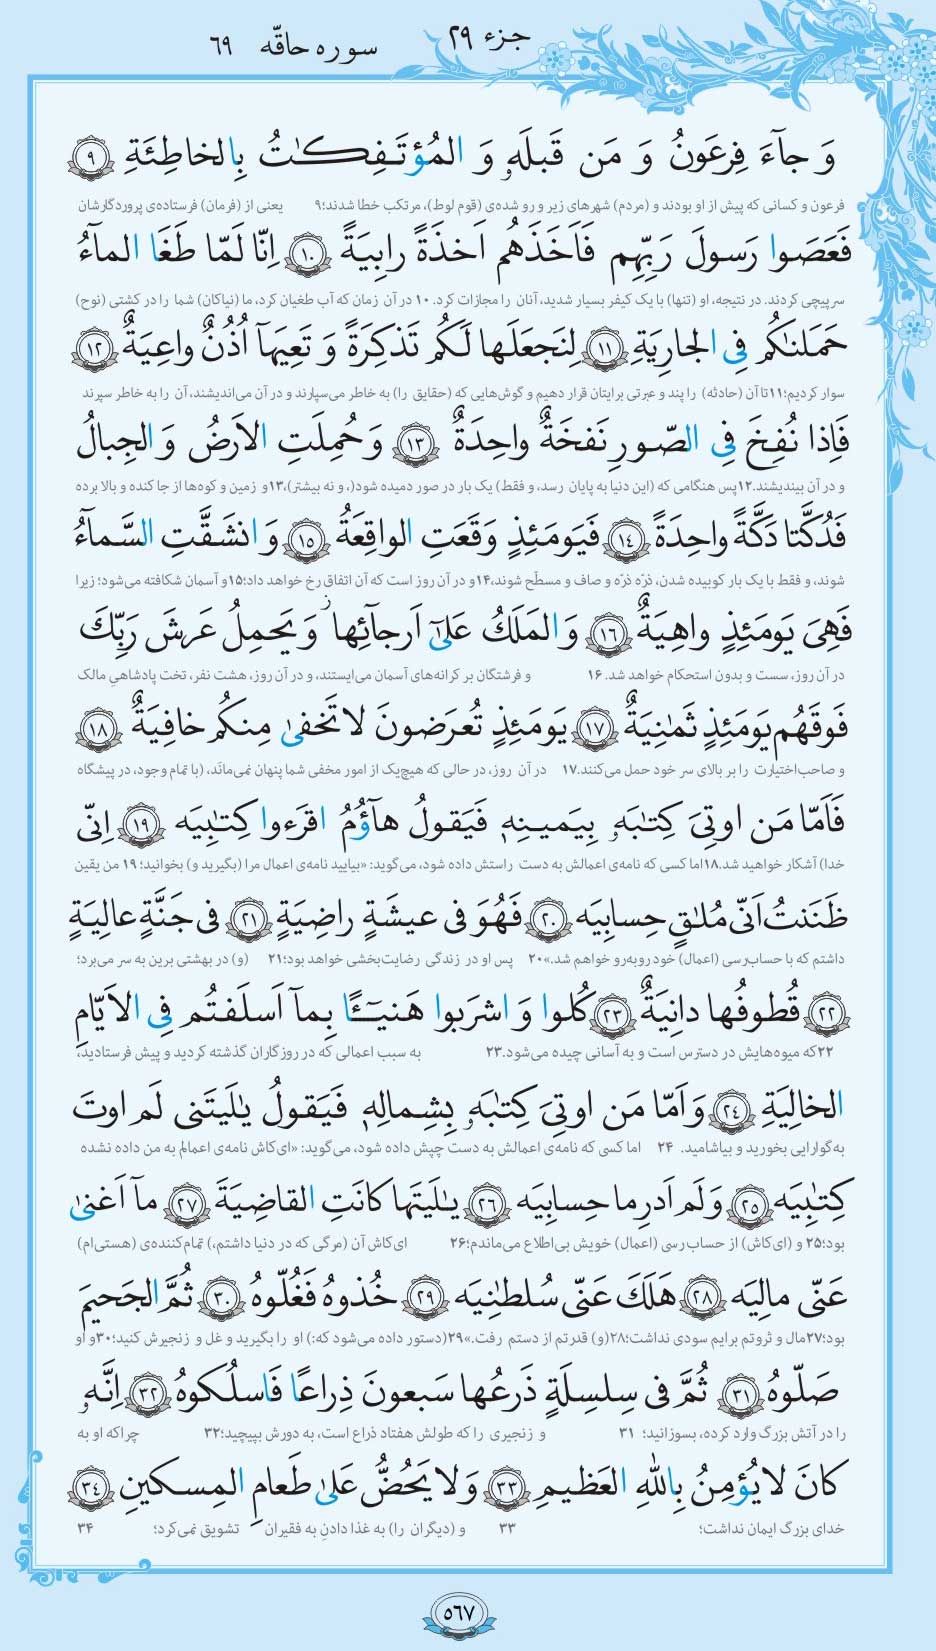 جزء ٢٩
سوره حاقّه ٦٩
وَ جآءَ فِرعَونُ وَ مَن قَبلَهٗ وَ المُؤتَفِكٰتُ بِالخاطِئَةِ ٩
فرعون و کسانی که پیش از او بودند و (مردم) شهرهای زیر و رو شده‌ی (قوم لوط)، مرتکب خطا شدند؛۹ یعنی از (فرمان) فرستاده‌ی پروردگارشان
فَعَصَوا رَسولَ رَبِّهِم فَاَخَذَهُم اَخذَةً رابِيَةً ١٠ اِنّا لَمّا طَغَا المآءُ
سرپیچی کردند. در نتیجه، او (تنها) با یک کیفر بسیار شدید، آنان را مجازات کرد. ۱۰ در آن زمان که آب طغیان کرد، ما (نیاکان) شما را در کشتی (نوح)
حَمَلنٰكُم فِی الجارِيَةِ ١١ لِنَجعَلَها لَكُم تَذكِرَةً وَ تَعِيَهآ اُذُنٌ واعِيَةٌ ١٢
سوار کردیم؛۱۱ تا آن (حادثه) را پند و عبرتی برایتان قرار دهیم و گوش‌هایی که (حقایق را) به خاطر می‌سپارند و در آن می‌اندیشند، آن را به خاطر سپرند
فَاِذا نُفِخَ فِی الصّورِ نَفخَةٌ واحِدَةٌ ١٣ وَ حُمِلَتِ الاَرضُ وَ الجِبالُ
و در آن بیندیشند.۱۲ پس هنگامی که (این دنیا به پایان رسد، و فقط) یک بار در صور دمیده شود(، و نه بیشتر)،۱۳ و زمین و کوه‌ها از جا کنده و بالا برده
فَدُكَّتا دَكَّةً واحِدَةً ١٤ فَيَومَئِذٍ وَقَعَتِ الواقِعَةُ ١٥ وَ انشَقَّتِ السَّمآءُ
شوند، و فقط با یک بار کوبیده شدن، ذرّه ذرّه و صاف و مسطّح شوند،۱۴ و در آن روز است که آن اتفاق رخ خواهد داد؛۱۵ و آسمان شکافته می‌شود؛ زیرا
فَهِیَ يَومَئِذٍ واهِيَةٌ ١٦ وَ المَلَكُ عَلیٰٓ اَرجآئِها ز وَ يَحمِلُ عَرشَ رَبِّكَ
در آن روز، سست و بدون استحکام خواهد شد. ۱۶ و فرشتگان بر کرانه‌های آسمان می‌ایستند، و در آن روز، هشت نفر، تخت پادشاهیِ مالک
فَوقَهُم يَومَئِذٍ ثَمٰنِيَةٌ ١٧ يَومَئِذٍ تُعرَضونَ لا تَخفیٰ مِنكُم خافِيَةٌ ١٨
و صاحب‌اختیارت را بر بالای سر خود حمل می‌کنند.۱۷ در آن روز، در حالی که هیچ‌یک از امور مخفی شما پنهان نمی‌مانَد، (با تمام وجود، در پیشگاه
فَاَمّا مَن اوتِیَ كِتٰبَهٗ بِيَمينِهٖ فَيَقولُ هآؤُمُ اقرَءوا كِتٰبِيَه ١٩ اِنّی
خدا) آشکار خواهید شد.۱۸ اما کسی که نامه‌ی اعمالش به دست راستش داده شود، می‌گوید: «بیایید نامه‌ی اعمال مرا (بگیرید و) بخوانید؛ ۱۹ من یقین
ظَنَنتُ اَنّی مُلٰقٍ حِسابِيَه ٢٠ فَهُوَ فی عيشَةٍ راضِيَةٍ ٢١ فی جَنَّةٍ عالِيَةٍ
داشتم که با حساب‌رسی (اعمال) خود روبه‌رو خواهم شد.»۲۰ پس او در زندگی رضایت‌بخشی خواهد بود؛۲۱ (و) در بهشتی برین به سر می‌برد؛
٢٢ قُطوفُها دانِيَةٌ ٢٣ كُلوا وَ اشرَبوا هَنيٓـًٔا بِمآ اَسلَفتُم فِی الاَيّامِ
۲۲ که میوه‌هایش در دسترس است و به آسانی چیده می‌شود.۲۳ به سبب اعمالی که در روزگاران گذشته کردید و پیش فرستادید،
الخالِيَةِ ٢٤ وَ اَمّا مَن اوتِیَ كِتٰبَهٗ بِشِمالِهٖ فَيَقولُ يٰلَيتَنی لَم اوتَ
به گوارایی بخورید و بیاشامید. ۲۴ اما کسی که نامه‌ی اعمالش به دست چپش داده شود، می‌گوید: «ای‌کاش نامه‌ی اعمالم به من داده نشده
كِتٰبِيَه ٢٥ وَ لَم اَدرِ ما حِسابِيَه ٢٦ يٰلَيتَها كانَتِ القاضِيَةَ ٢٧ مآ اَغنیٰ
بود؛۲۵ و (ای‌کاش) از حساب‌رسی (اعمال) خویش بی‌اطلاع می‌ماندم؛۲۶ ای‌کاش آن (مرگی که در دنیا داشتم،) تمام‌کننده‌ی (هستی‌ام)
عَنّی مالِيَه ٢٨ هَلَكَ عَنّی سُلطٰنِيَه ٢٩ خُذوهُ فَغُلّوهُ ٣٠ ثُمَّ الجَحيمَ
بود؛۲۷ مال و ثروتم برایم سودی نداشت؛۲۸ (و) قدرتم از دستم رفت.»۲۹ (دستور داده می‌شود که:) او را بگیرید و غل و زنجیرش کنید؛۳۰ و او
صَلّوهُ ٣١ ثُمَّ فی سِلسِلَةٍ ذَرعُها سَبعونَ ذِراعًا فَاسلُكوهُ ٣٢ اِنَّهٗ
را در آتش بزرگ وارد کرده، بسوزانید؛ ۳۱ و زنجیری را که طولش هفتاد ذراع است، به دورش بپیچید؛۳۲ چراکه او به
كانَ لا يُؤمِنُ بِاللّٰهِ العَظيمِ ٣٣ وَ لا يَحُضُّ عَلیٰ طَعامِ المِسكينِ ٣٤
خدای بزرگ ایمان نداشت؛ ۳۳ و (دیگران را) به غذا دادنِ به فقیران تشویق نمی‌کرد؛ ۳۴
٥٦٧